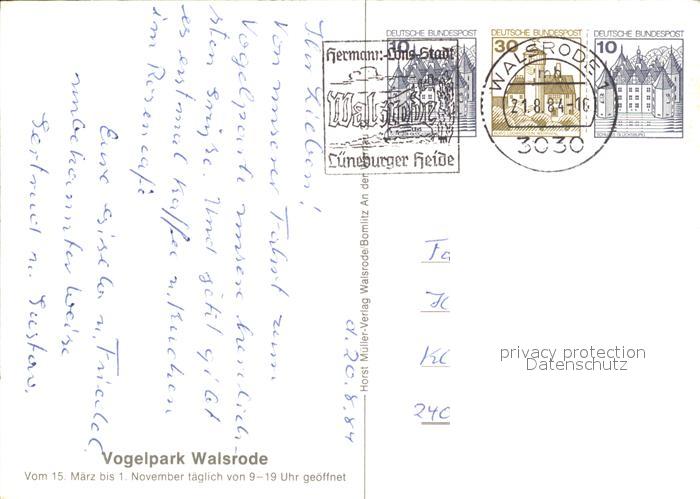 Ihr Lieben!
Von unserer Fahrt zum
Vogelpark unsere herzlich-
sten Grüße. Und jetzt gibt
es erstmal Kaffee u. Kuchen
im Rosencafé
Eure Gisela u. Friedel
unbekannter Weise
Gertrud u. Gustav.
d. 20.8.84
Vogelpark Walsrode
Vom 15. März bis 1. November täglich von 9–19 Uhr geöffnet
Horst Müller-Verlag Walsrode/Bomlitz An der
Hermann-Löns-Stadt
Walsrode
Lüneburger Heide
DEUTSCHE BUNDESPOST
10
DEUTSCHE BUNDESPOST
30
DEUTSCHE BUNDESPOST
10
SCHLOSS GLÜCKSBURG
WALSRODE 1
mb
21.8.84-16
3030
Fa
Kl
240
privacy protection
Datenschutz